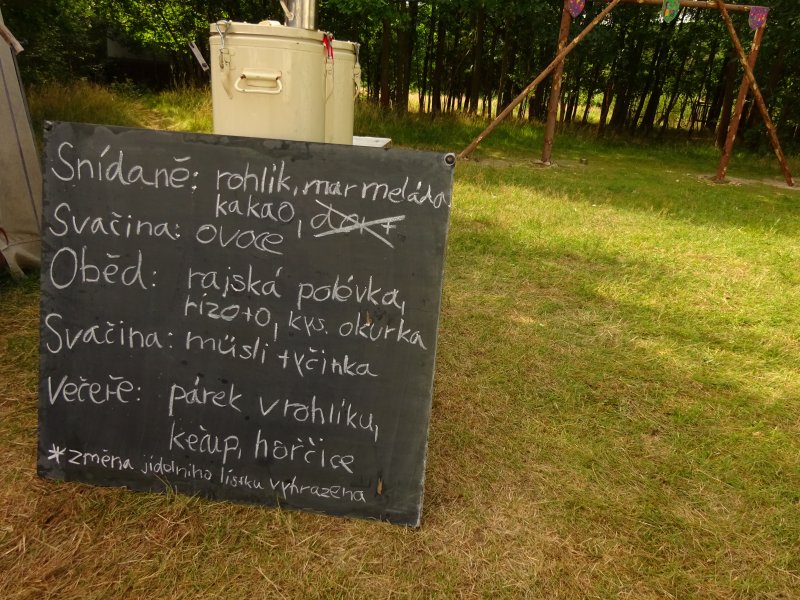 Snídaně: rohlik, marmeláda,
kakao,
Svačina: ovoce
Oběd: rajská polévka,
rizoto, kys. okurka
Svačina: müsli tyčinka
Večeře: párek v rohlíku,
kečup, hořčice
*změna jídelního lístku vyhrazena